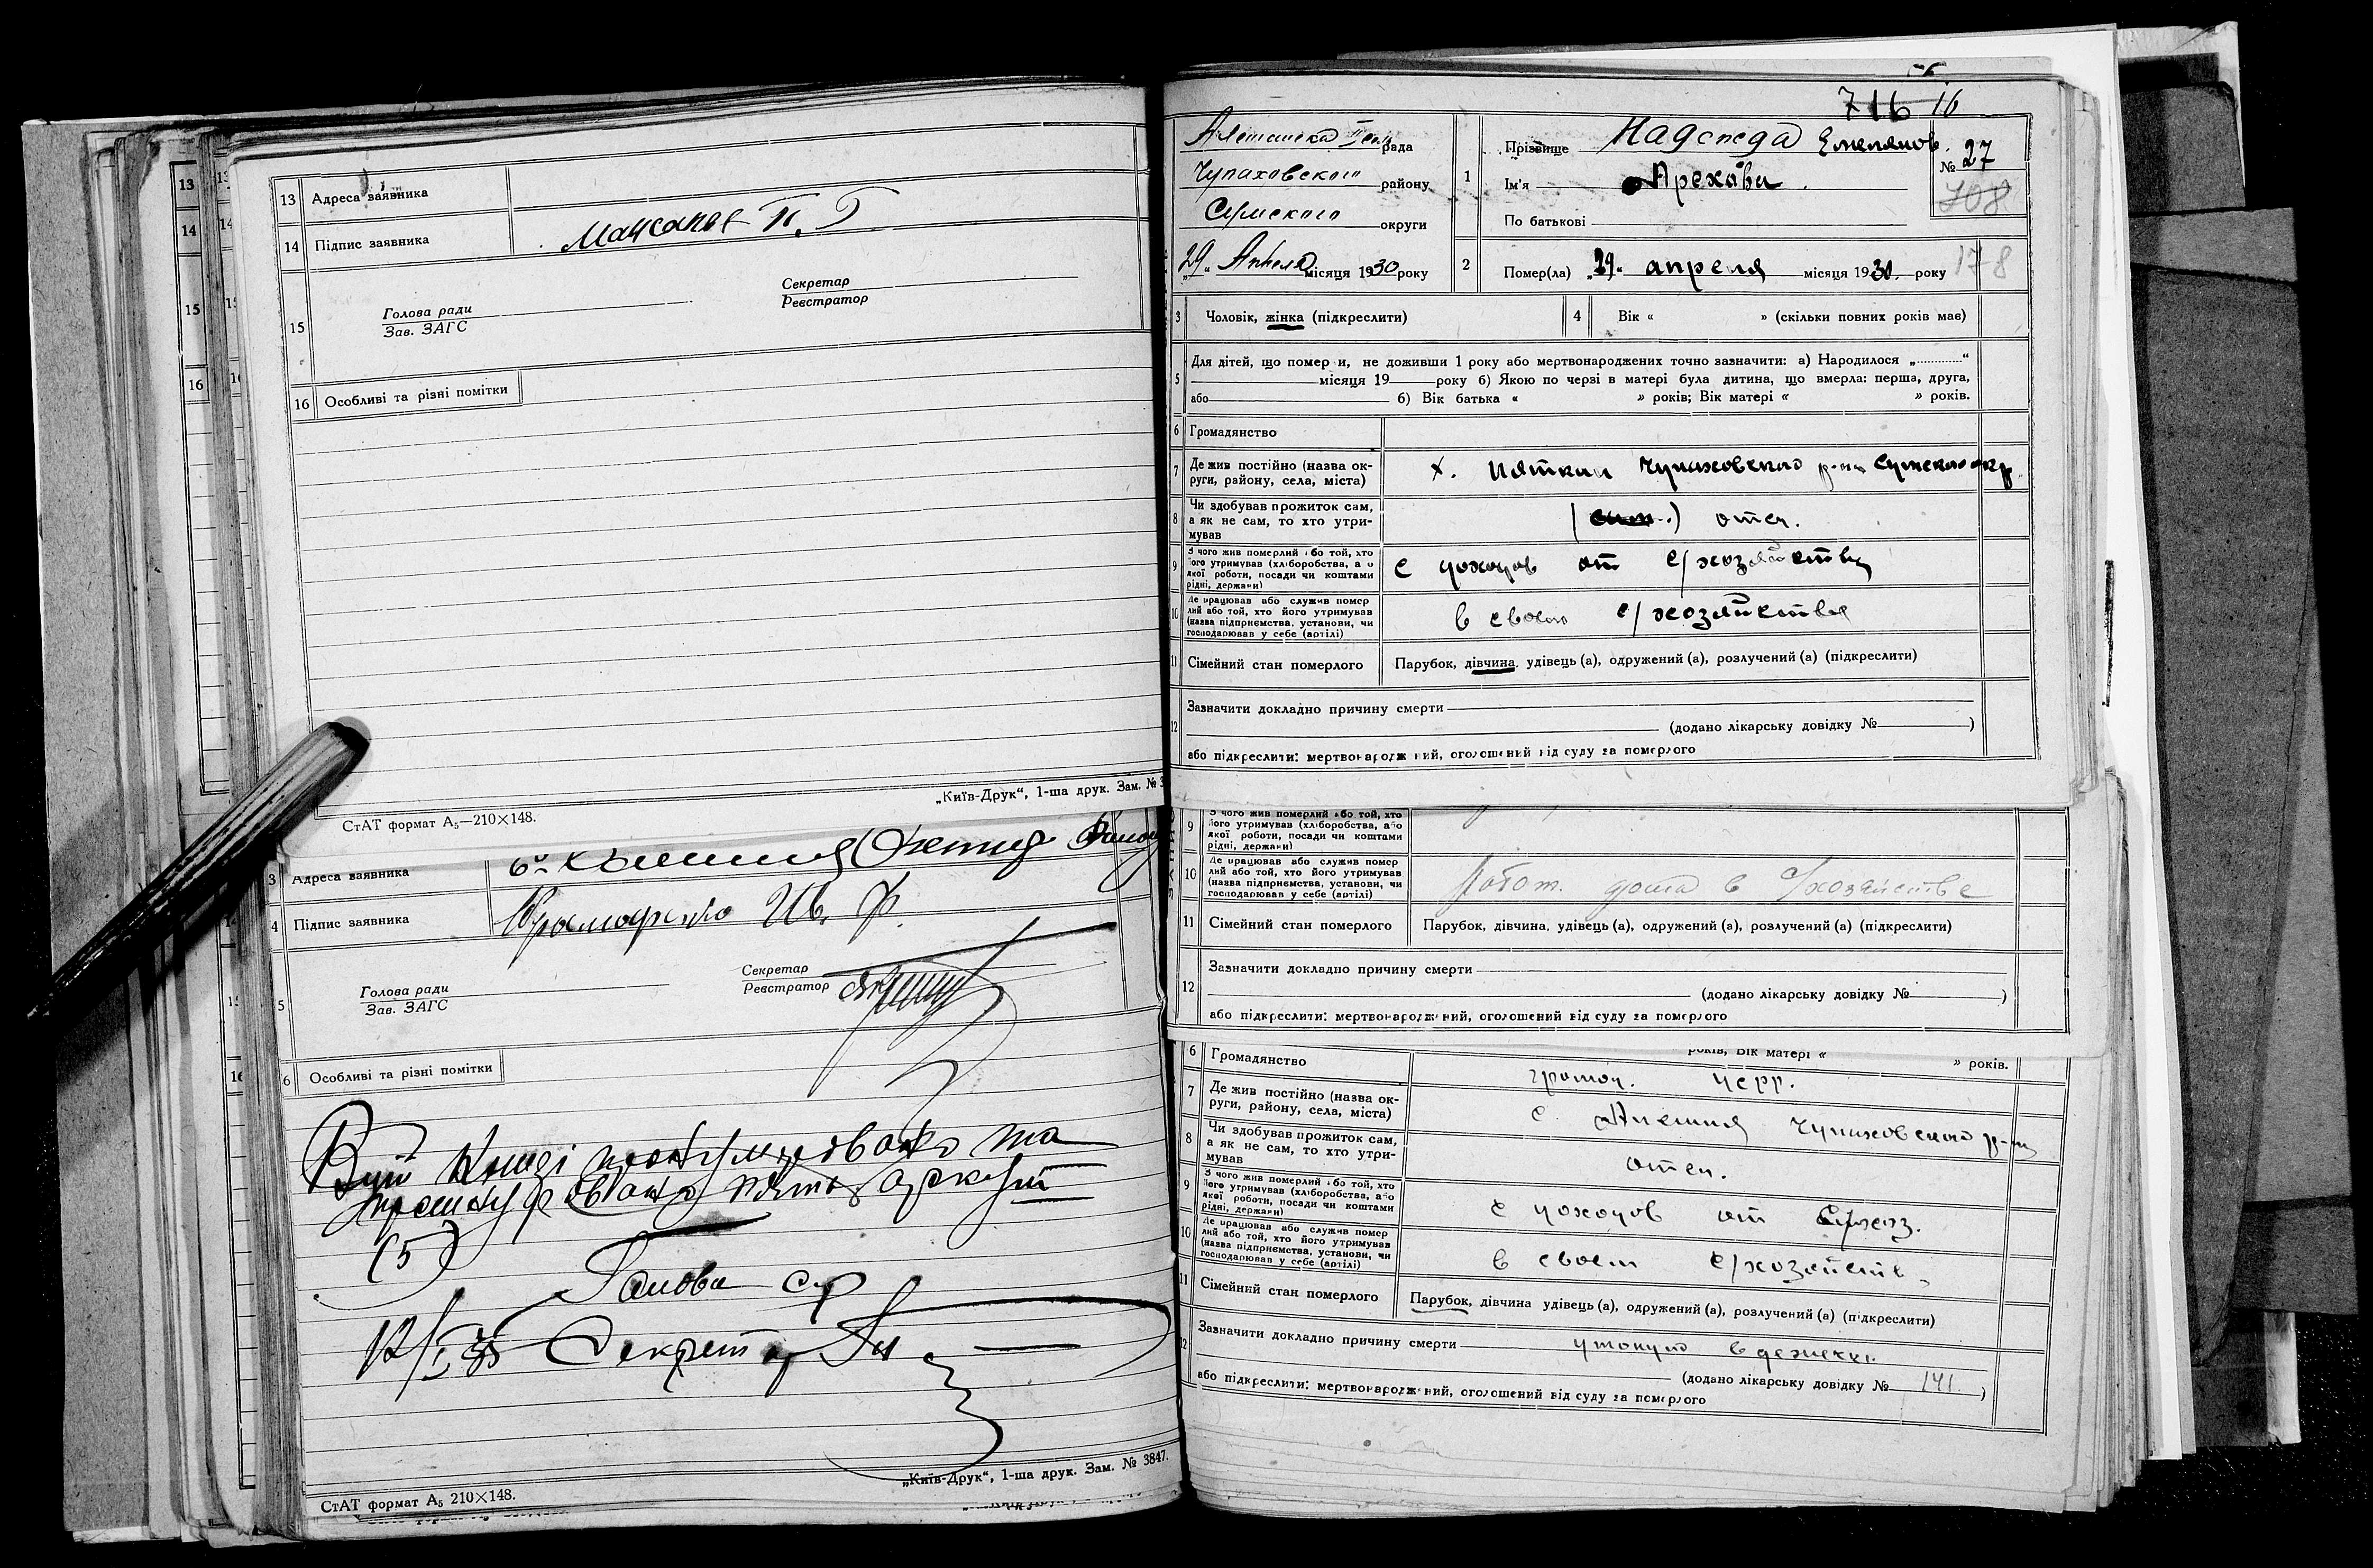 13 Адреса заявника
14 Підпис заявника
15
Голова ради
Зав. ЗАГС
Секретар
Реєстратор
16 Особливі та різні помітки
СтАТ формат А₅—210×148.
„Київ-Друк“, 1-ша друк. Зам. №
Адреса заявника
4 Підпис заявника Ив. Ф.
5
Голова ради
Зав. ЗАГС
Секретар
Реєстратор
6 Особливі та різні помітки
В цій книзі пронумеровано та
аркушів
(5)
Голова с/р
Секретар
СтАТ формат А₅ 210×148.
„Київ-Друк“, 1-ша друк. Зам. № 3847.
716 16
рада
Чупаховского району
Сумского округи
„29“ Апреля місяця 1930 року
1 Прізвище Надежда Емельянов.
Ім'я Арехова
По батькові
№ 27
708
2 Помер(ла) „29“ апреля місяця 1930. року
178
3 Чоловік, жінка (підкреслити)
4 Вік « » (скільки повних років має)
5 Для дітей, що померли, не доживши 1 року або мертвонароджених точно зазначити: а) Народилося „ “
місяця 19 року б) Якою по черзі в матері була дитина, що вмерла: перша, друга,
або б) Вік батька « » років; Вік матері « » років.
6 Громадянство
7 Де жив постійно (назва округи, району, села, міста)
х. Пяткин Чупаховского р-на Сумского окр.
8 Чи здобував прожиток сам, а як не сам, то хто утримував
отец.
9 З чого жив померлий або той, хто його утримував (хліборобства, або якої роботи, посади чи коштами рідні, держави)
с доходов от с/хозяйства
10 Де працював або служив померлий або той, хто його утримував (назва підприємства, установи, чи господарював у себе (артілі)
в своем с/хозяйстве
11 Сімейний стан померлого
Парубок, дівчина, удівець (а), одружений (а), розлучений (а) (підкреслити)
12 Зазначити докладно причину смерти
(додано лікарську довідку № )
або підкреслити: мертвонароджений, оголошений від суду за померлого
9 З чого жив померлий або той, хто його утримував (хліборобства, або якої роботи, посади чи коштами рідні, держави)
10 Де працював або служив померлий або той, хто його утримував (назва підприємства, установи, чи господарював у себе (артілі)
Работ. дома в с/хозяйстве
11 Сімейний стан померлого
Парубок, дівчина, удівець (а), одружений (а), розлучений (а) (підкреслити)
12 Зазначити докладно причину смерти
(додано лікарську довідку № )
або підкреслити: мертвонароджений, оголошений від суду за померлого
років, Вік матері « » років.
6 Громадянство
7 Де жив постійно (назва округи, району, села, міста)
с. Алешня Чупаховского р-на
8 Чи здобував прожиток сам, а як не сам, то хто утримував
отец.
9 З чого жив померлий або той, хто його утримував (хліборобства, або якої роботи, посади чи коштами рідні, держави)
с доходов от с/хоз.
10 Де працював або служив померлий або той, хто його утримував (назва підприємства, установи, чи господарював у себе (артілі)
в своем с/хозяйств
11 Сімейний стан померлого
Парубок, дівчина удівець (а), одружений (а), розлучений (а) (підкреслити)
12 Зазначити докладно причину смерти утонул в
(додано лікарську довідку № 141. )
або підкреслити: мертвонароджений, оголошений від суду за померлого